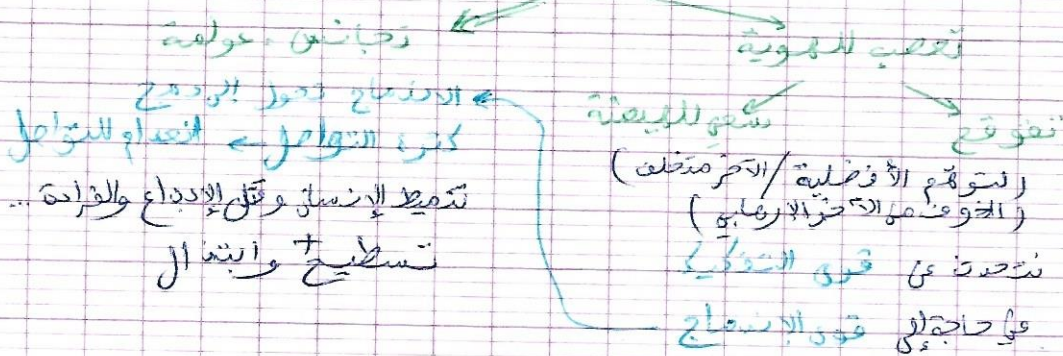 تعصب للهوية
تقوقع
سعي للهيمنة
(لتوهم الأفضلية / الآخر متخلف)
(الخوف من الآخر الإرهابي)
نتحدث عن قوى التفكيك
في حاجة إلى قوى الاندماج
تجانس، عولمة
الاندماج تحول إلى دمج
كثرة التواصل ← انعدام للتواصل
تنميط الإنسان وقتل الإبداع والفرادة ...
تسطيح + وابتذال